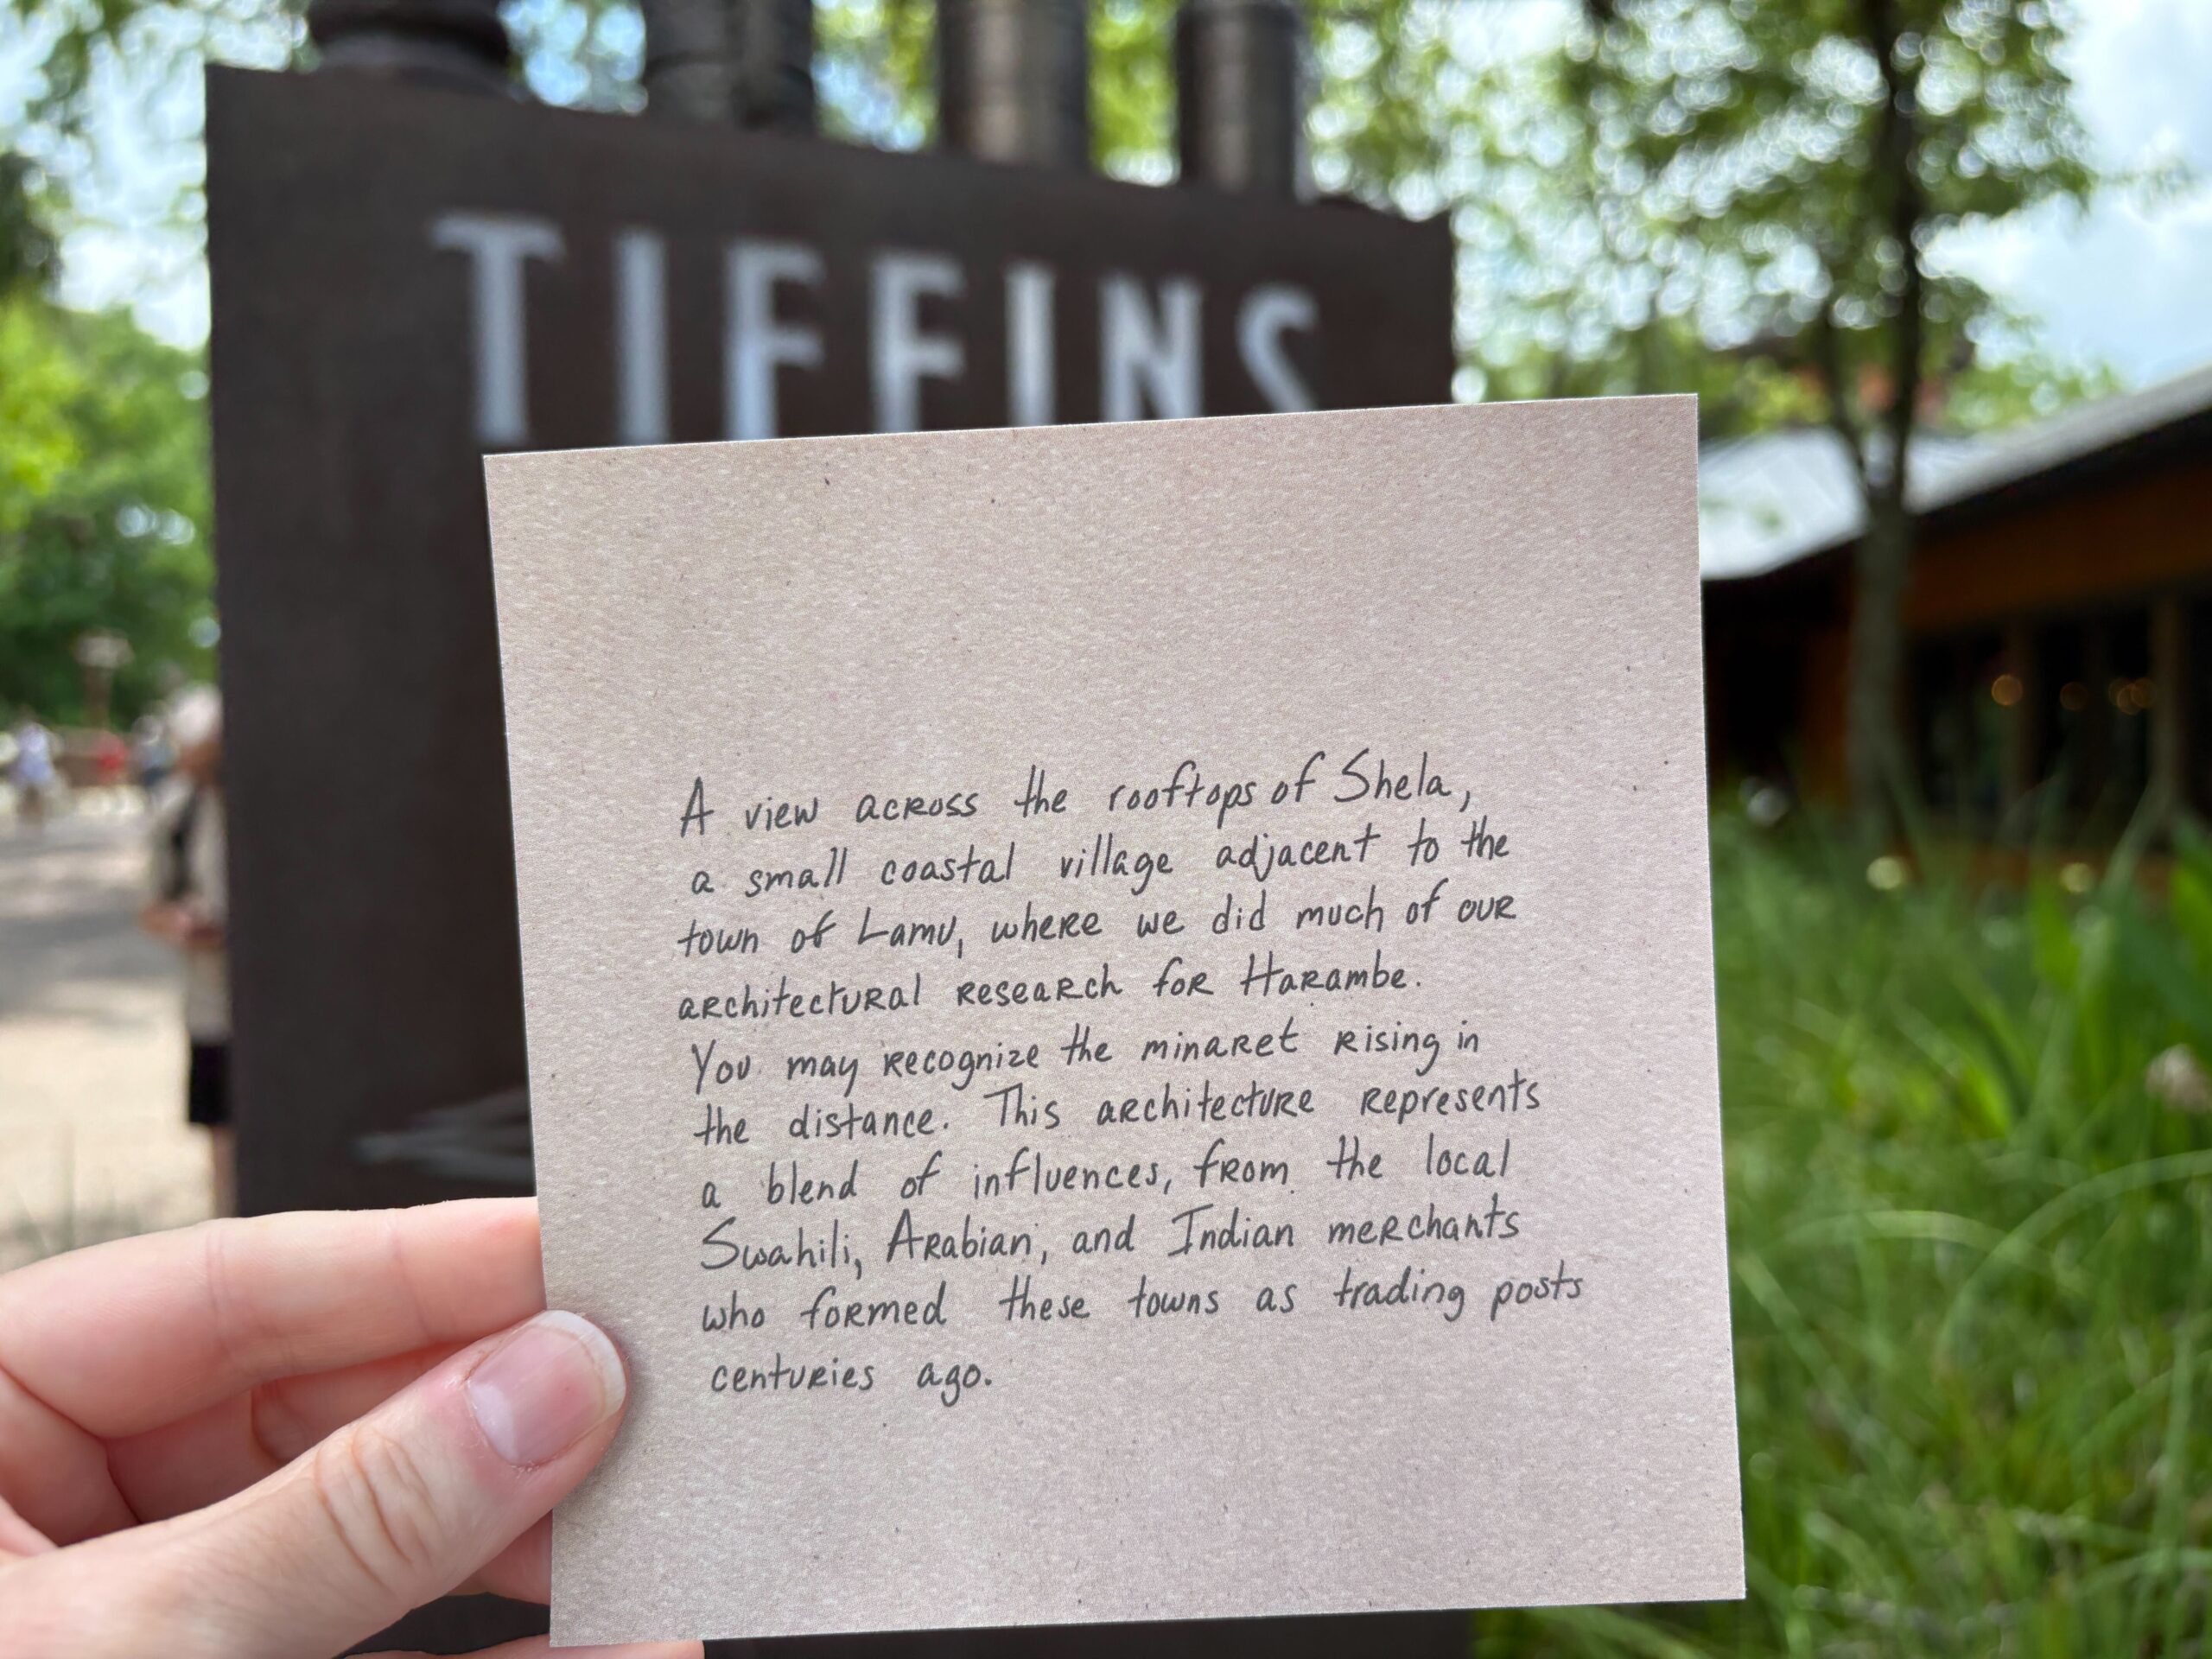 TIFFINS
A view across the rooftops of Shela,
a small coastal village adjacent to the
town of Lamu, where we did much of our
architectural research for Harambe.
You may recognize the minaret rising in
the distance. This architecture represents
a blend of influences, from the local
Swahili, Arabian, and Indian merchants
who formed these towns as trading posts
centuries ago.